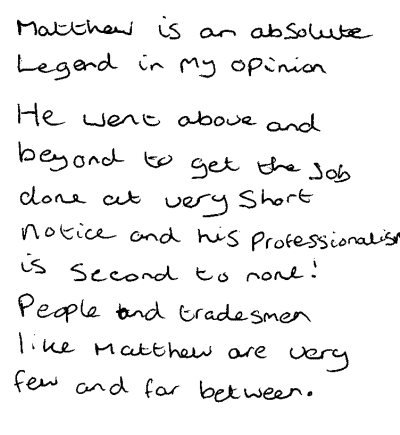 Matthew is an absolute
Legend in my opinion
He went above and
beyond to get the Job
done at very short
notice and his Professionalism
is second to none!
People and tradesmen
like Matthew are very
few and far between.